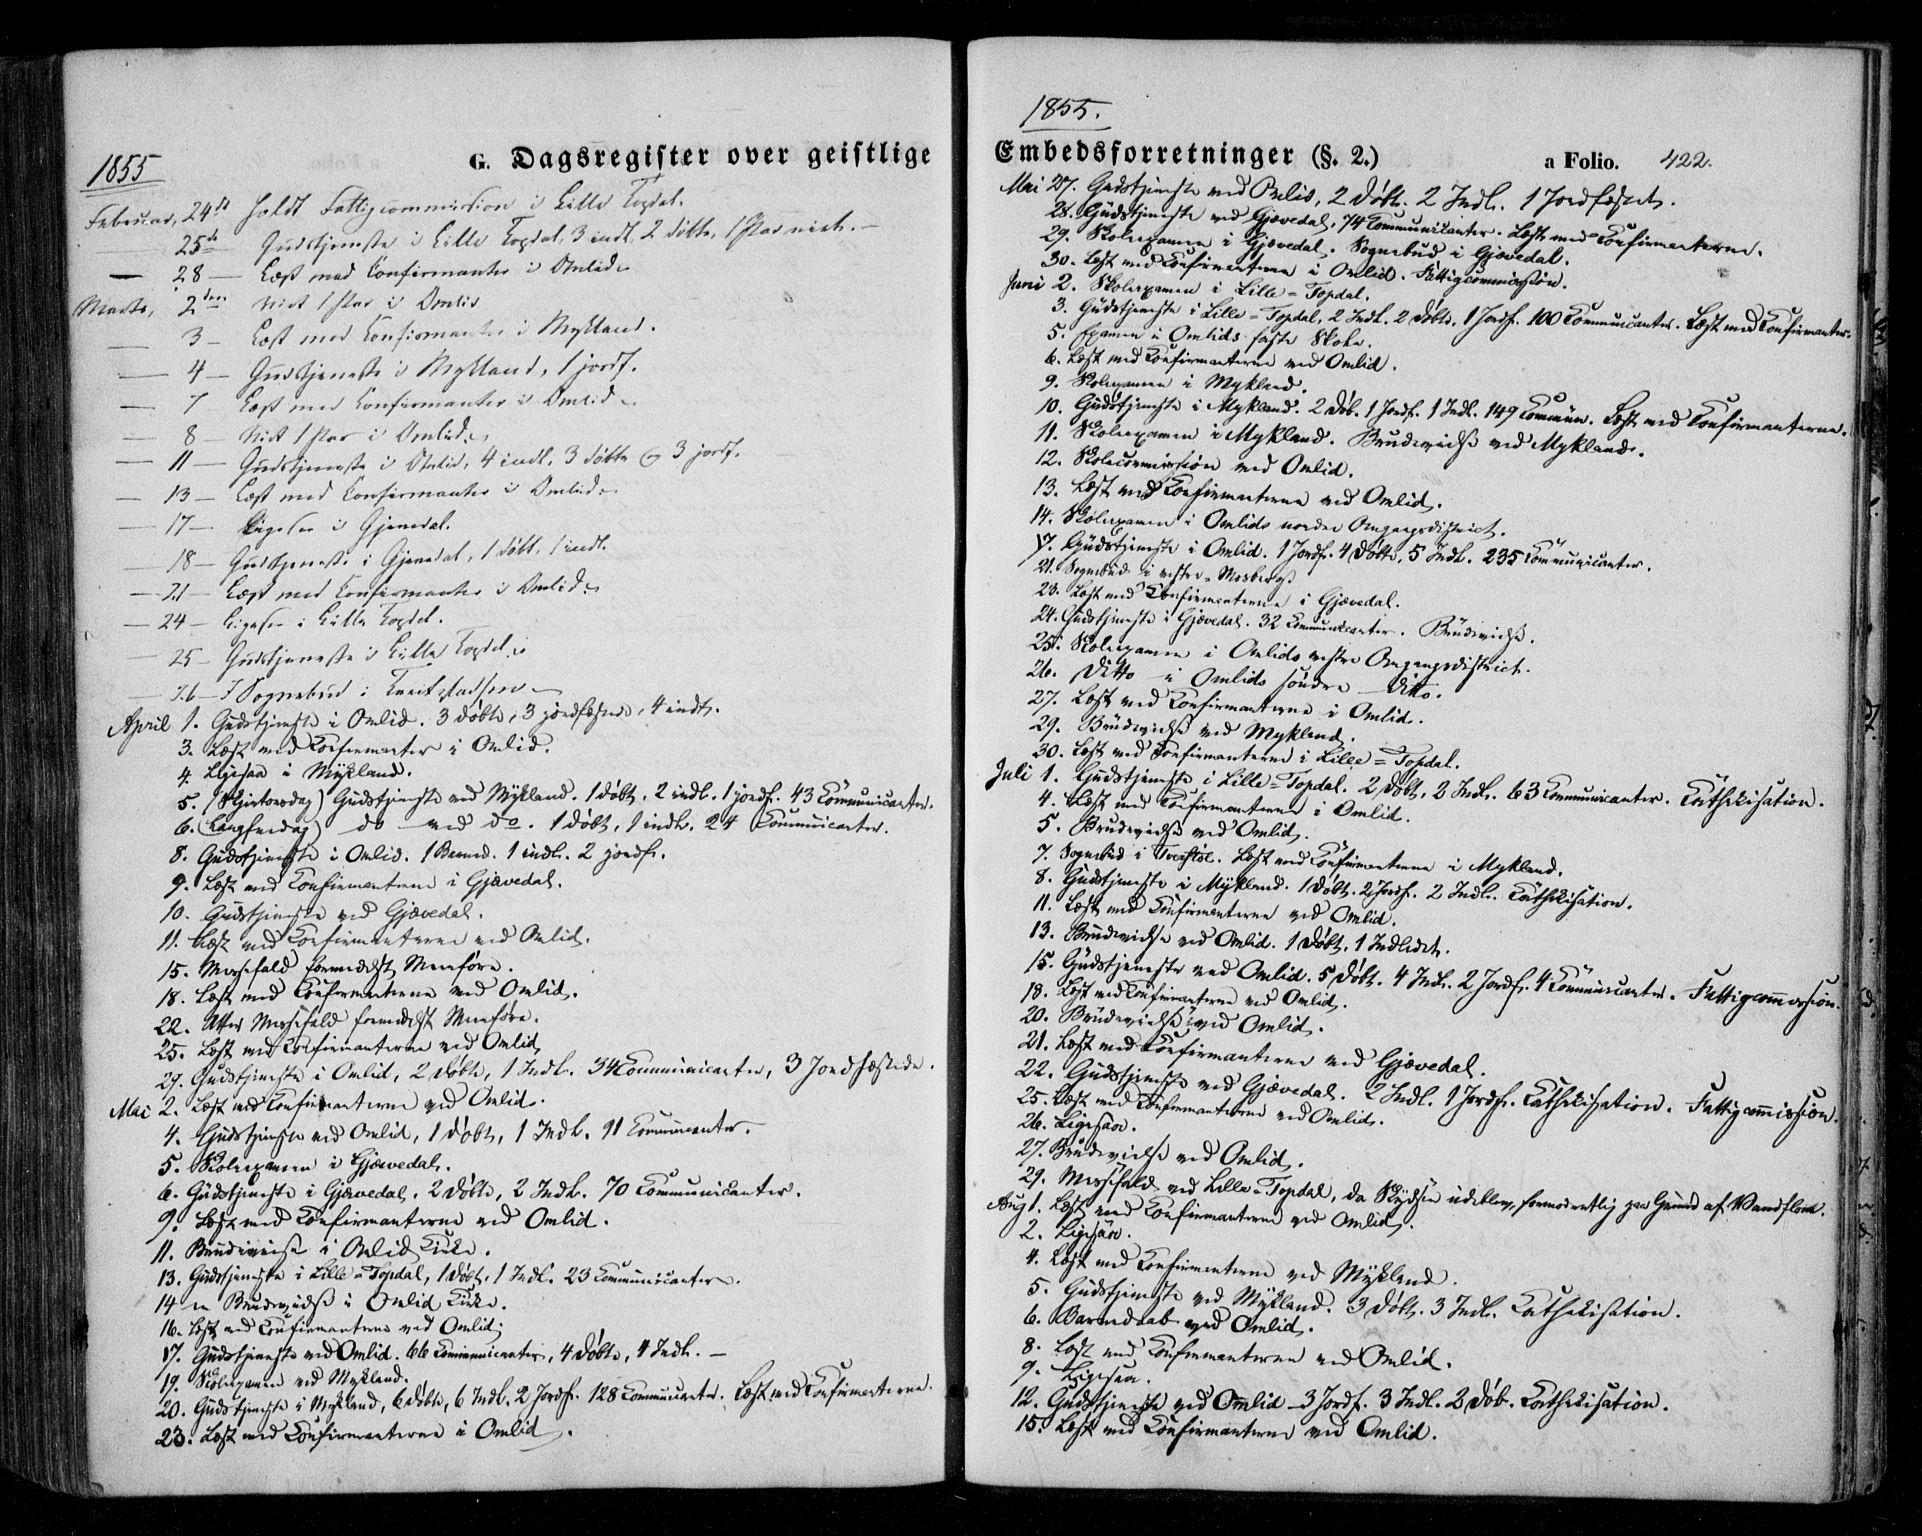 1855
G. Dagsregister over geistlige
Februar, 24de holdt Fattigcommission i Lille Topdal.
25de Gudstjeneste i Lille Topdal, 3 indl. 2 døbte, 1 Par viet. —
— 28 — Læst med Confirmanter i Omlid
Marts, 2den viet 1 Par i Omlid
— 3 — Læst med Confirmanter i Mykland.
— 4 — Gudstjeneste i Mykland, 1 jordf.
— 7 Læst med Confirmanter i Omlid
— 8 — viet 1 Par i Omlid
— 11 — Gudstjeneste i Omlid, 4 indl. 3 døbte og 3 jordf.
— 13 — Læst med Confirmanter i Omlid
— 17 — Ligesaa i Gjævedal.
— 18 — Gudstjeneste i Gjævedal, 1 døbt, 1 indl.
— 21 — Læst med Confirmanter i Omlid
— 24 — Ligesaa i Lille Topdal.
— 25 — Gudstjeneste i Lille Topdal
— 26 — I Sognebud i
April 1. Gudstjeneste i Omlid. 3 døbte, 3 jordfæstede, 4 indl.
3. Læst med Confirmanter i Omlid.
4. Ligesaa i Mykland.
5. (Skjertorsdag) Gudstjeneste ved Mykland. 1 døbt, 2 indl. 1 jordf. 43 Communicanter.
6. (Langfredag) do ved do. 1 døbt, 1 indl. 24 Communicanter.
8. Gudstjeneste i Omlid. 1 Barned. 1 indl. 2 jordf.
9. Læst med Confirmanterne i Gjævedal.
10. Gudstjeneste ved Gjævedal.
11. Læst med Confirmanterne ved Omlid.
15. Messefald formedelst Meenføre.
18. Læst med Confirmanterne ved Omlid.
22. Atter Messefald formedelst Meenføre.
25. Læst med Confirmanterne ved Omlid
27. Gudstjeneste i Omlid, 2 døbte, 1 Indl. 34 Communicanter, 3 Jordfæstede.
Mai 2. Læst med Confirmanterne ved Omlid.
4. Gudstjeneste ved Omlid, 1 døbt, 1 Indl. 91 Communicanter.
5. Skolexamen i Gjævedal.
6. Gudstjeneste i Gjævedal. 2 døbte, 2 Indl. 70 Communicanter.
9. Læst med Confirmanterne ved Omlid.
11. Brudevielse i Omlid Kirke.
13. Gudstjeneste i Lille-Topdal, 1 døbt. 1 Indl. 23 Communicanter.
14 Brudevielse i Omlid Kirke.
16. Læst med Confirmanterne ved Omlid
17. Gudstjeneste ved Omlid. 66 Communicanter, 4 døbte, 4 Indl. —
19. Skolexamen ved Mykland.
20. Gudstjeneste i Mykland, 6 døbte, 6 Indl. 2 Jordf. 128 Communicanter. Læst med Confirmanterne.
23. Læst med Confirmanterne i Omlid.
1855.
Embedsforretninger (§. 2.) a Folio. 422.
Mai 27. Gudstjeneste ved Omlid, 2 døbt. 2 Indl. 1 Jordfæstet.
28. Gudstjeneste ved Gjævedal, 74 Communicanter. Læst med Confirmanterne.
29. Skolexamen i Gjævedal. Sognebud i Gjævedal.
30. Læst med Confirmanterne i Omlid. Fattigcommission.
Juni 2. Skolexamen i Lille-Topdal.
3. Gudstjeneste i Lille-Topdal. 2 Indl. 2 døbte. 1 Jordf. 100 Communicanter. Læst med Confirmanter.
5. Examen i Omlids faste Skole.
6. Læst med Confirmanterne ved Omlid.
9. Skolexamen i Mykland.
10. Gudstjeneste i Mykland. 2 døb. 1 Jordf. 1 Indl. 149 Commun. Læst med Confirmanterne.
11. Skolexamen i Mykland. Brudevielse ved Mykland.
12. Skolecommission ved Omlid.
13. Læst med Confirmanterne ved Omlid.
14. Skolexamen i Omlids nordre Omgangsdistrict.
17. Gudstjeneste i Omlid. 1 Jordf. 4 døbte, 5 Indl. 235 Communicanter.
21. Sognebud i vestre
23. Læst med Confirmanterne i Gjævedal.
24. Gudstjeneste i Gjævedal. 32 Communicanter. Brudevielse.
25. Skolexamen i Omlids vestre Omgangsdistrict.
26. Ditto i Omlids søndre Ditto.
27. Læst med Confirmanterne i Omlid.
29. Brudevielse ved Mykland.
30. Læst med Confirmanterne i Lille-Topdal.
Juli 1. Gudstjeneste i Lille-Topdal. 2 døbt, 2 Indl. 63 Communicanter. Cathekisation.
4. Læst med Confirmanterne i Omlid.
5. Brudevielse ved Omlid.
7. Sognebud i Læst med Confirmanterne i Mykland.
8. Gudstjeneste i Mykland. 1 døbt. 2 Jordf. 2 Indl. Cathekisation.
11. Læst med Confirmanterne ved Omlid.
13. Brudevielse ved Omlid. 1 døbt, 1 Indledet.
15. Gudstjeneste ved Omlid. 5 døbt. 4 Indl. 2 Jordf. 4 Communicanter. Fattigcommission.
18. Læst med Confirmanterne ved Omlid.
20. Brudevielse ved Omlid.
21. Læst med Confirmanterne ved Gjævedal.
22. Gudstjeneste ved Gjævedal. 2 Indl. 1 Jordf. Cathekisation. Fattigcommission.
25. Læst med Confirmanterne ved Omlid.
26. Ligesaa.
27. Brudevielse ved Omlid.
29. Messefald ved Lille-Topdal, da Skydsen udeblev, formodentlig paa Grund af Vandflom.
Aug 1. Læst med Confirmanterne ved Omlid.
2. Ligesaa.
4. Læst med Confirmanterne ved Mykland.
5. Gudstjeneste ved Mykland. 3 døbt. 3 Indl. Cathekisation.
6. Barnedaab ved Omlid.
8. Læst med Confirmanterne ved Omlid.
9. Ligesaa.
12. Gudstjeneste ved Omlid 3 Jordf. 3 Indl. 2 døb. Cathekisation.
15. Læst med Confirmanterne ved Omlid.